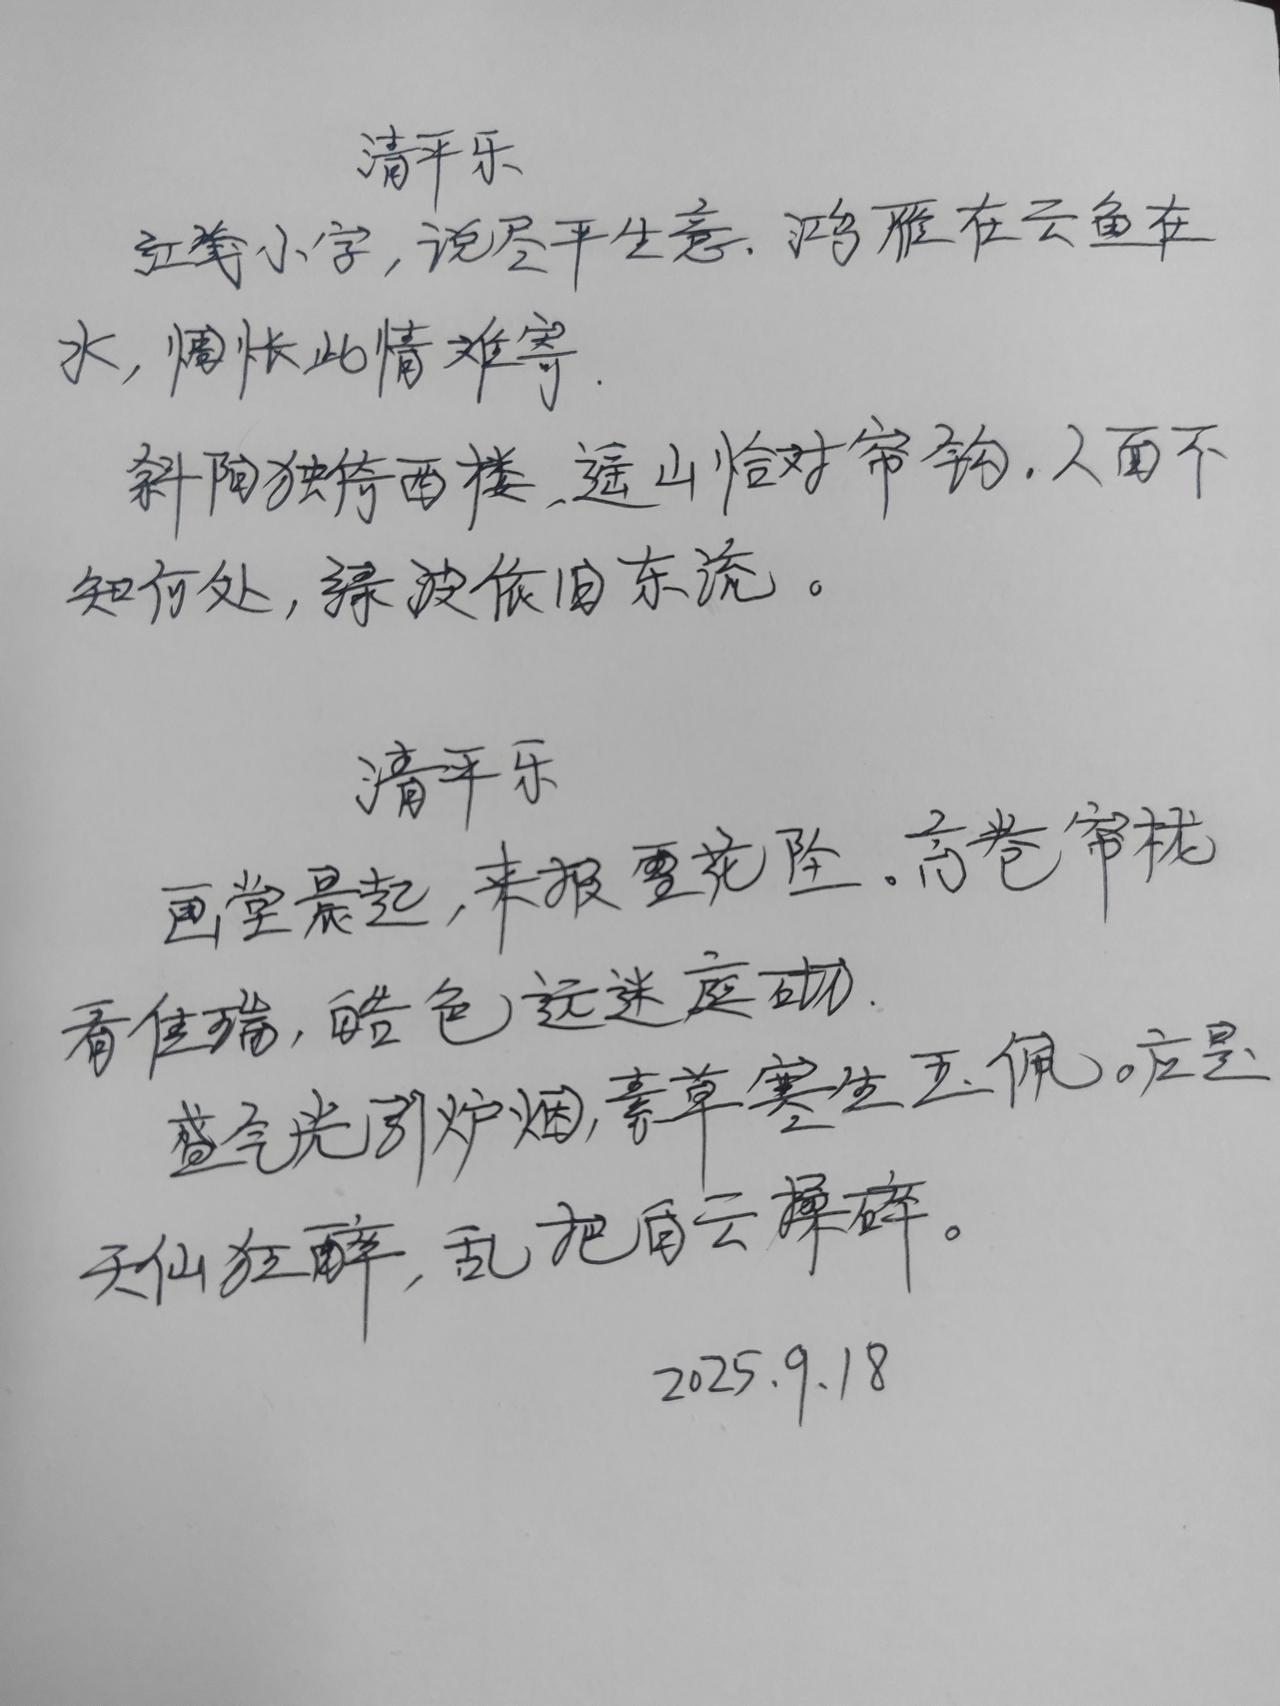 清平乐
红笺小字,说尽平生意.鸿雁在云鱼在
水,惆怅此情难寄.
斜阳独倚西楼,遥山恰对帘钩.人面不
知何处,绿波依旧东流。
清平乐
画堂晨起,来报雪花坠。高卷帘栊
看佳瑞,皓色远迷庭砌.
盛气光引炉烟,素草寒生玉佩。应是
天仙狂醉,乱把白云揉碎。
2025.9.18